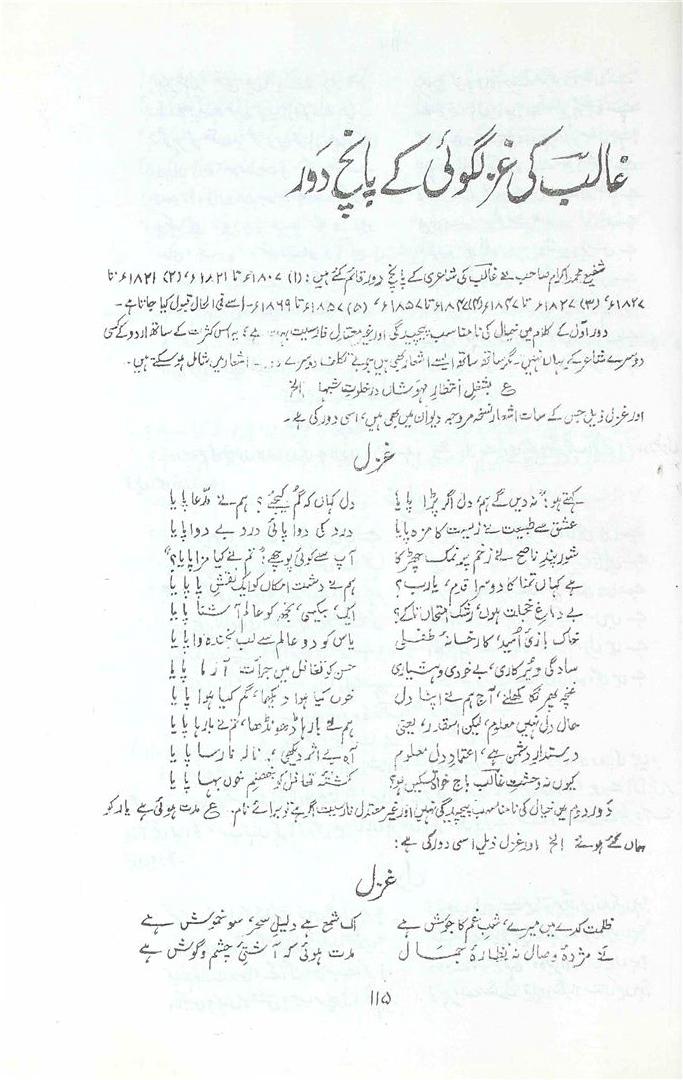 غالبؔ کی غزلگوئی کے پانچ دَور
شیخ محمد اکرام صاحب نے غالبؔ کی شاعری کے پانچ دور قائم کئے ہیں: (۱) ۱۸۰۷ء تا ۱۸۲۱ء، (۲) ۱۸۲۱ء تا
۱۸۲۷ء، (۳) ۱۸۲۷ء تا ۱۸۴۷ء (۴) ۱۸۴۷ء تا ۱۸۵۷ء، (۵) ۱۸۵۷ء تا ۱۸۶۹ء۔ اسے فی الحال قبول کیا جاتا ہے۔
دورِ اوّل کے کلام میں خیال کی نامناسب پیچیدگی اور غیر معتدل فارسیت بہت ہے؛ یہ اس کثرت کے ساتھ اردو کے کسی
دوسرے شاعر کے یہاں نہیں۔ مگر ساتھ ساتھ ایسے اشعار بھی ہیں جو بے تکلف دوسرے دور کے اشعار میں شامل ہو سکتے ہیں۔
ع بشغلِ انتظارِ مہوشاں در خلوتِ شبہا الخ
اور غزل ذیل جس کے سات اشعار نسخہ مروجہ دیوان میں بھی ہیں، اسی دور کی ہے۔
غزل
کہتے ہو: "نہ دیں گے ہم، دل اگر پڑا پایا" دل کہاں کہ گم کیجئے؟ ہم نے مدّعا پایا
عشق سے طبیعت نے زیست کا مزہ پایا درد کی دوا پائی درد بے دوا پایا
شورِ پندِ ناصح نے زخم پر نمک چھڑکا آپ سے کوئی پوچھے: "تم نے کیا مزا پایا؟"
ہے کہاں تمنا کا دوسرا قدم، یارب؟ ہم نے دشتِ امکاں کو ایک نقشِ پا پایا
بے دماغِ خجلت ہوں، رشکِ امتحاں تا کے؟ ایک بیکسی، تجھ کو عالم آشنا پایا
خاک بازیِ اُمید، کارخانۂ طفلی یاس کو دو عالم سے لب بخندہ وا پایا
سادگی و پُرکاری، بے خودی و ہشیاری حسن کو تغافل میں جراَت آزما پایا
غنچہ پھر لگا کھلنے، آج ہم نے اپنا دل خوں کیا ہوا دیکھا، گم کیا ہوا پایا
حالِ دل نہیں معلوم، لیکن اسقدر، یعنی ہم نے بارہا ڈھونڈھا، تم نے بارہا پایا
دوستدارِ دشمن ہے، اعتمادِ دل معلوم آہ بے اثر دیکھی، نالہ نارسا پایا
کیوں نہ وحشتِ غالبؔ باج خواہِ تسکیں ہو؟ کشتۂ تغافل کو خصمِ خوں بہا پایا
دَورِ دوم میں خیال کی نامناسب پیچیدگی نہیں اور غیر معتدل فارسیت اگر ہے تو برائے نام۔ ع مدت ہوئی ہے یار کو
مہماں کئے ہوئے الخ اور غزل ذیل اسی دور کی ہے:
غزل
ظلمت کدے میں میرے، شبِ غم کا جوش ہے اک شمع ہے دلیلِ سحر، سو خموش ہے
نے مژدۂ وصال نہ نظارۂ جمال مدت ہوئی کہ آشتیِ چشم و گوش ہے
۱۱۵